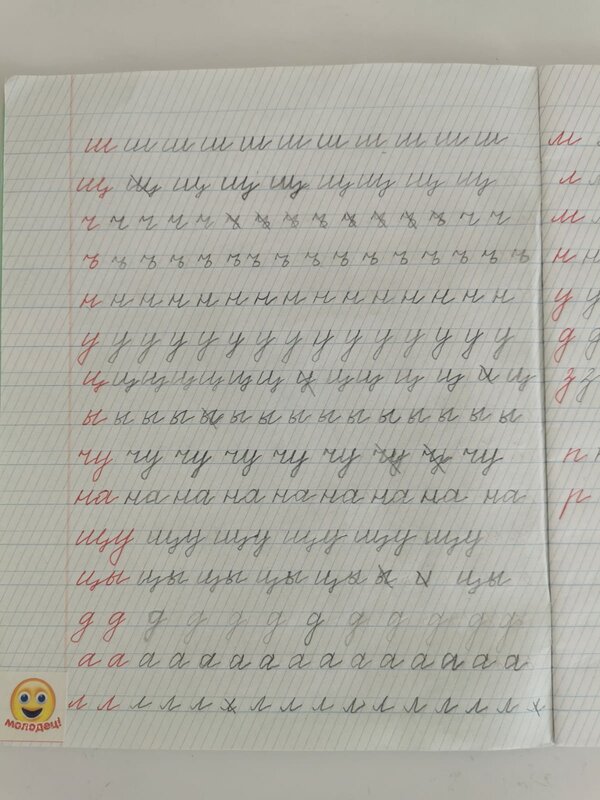 ш ш ш ш ш ш ш ш ш ш ш
щ щ щ щ щ щ щ щ щ
ч ч ч ч ч ч ч ч ч ч ч ч ч ч ч
ъ ъ ъ ъ ъ ъ ъ ъ ъ ъ ъ ъ ъ ъ ъ ъ
н н н н н н н н н н н н н н н
у у у у у у у у у у у у у у у
ц ц ц ц ц ц ц ц ц ц ц ц ц ц
ы ы ы ы ы ы ы ы ы ы ы ы ы ы ы
чу чу чу чу чу чу чу чу чу
на на на на на на на на на
щу щу щу щу щу щу
цы цы цы цы цы цы
д д д д д д д д д д д д
а а а а а а а а а а а а а а а
л л л л л л л л л л л л л л л
молодец!
м
л
м
н
у
д
з з
п
р